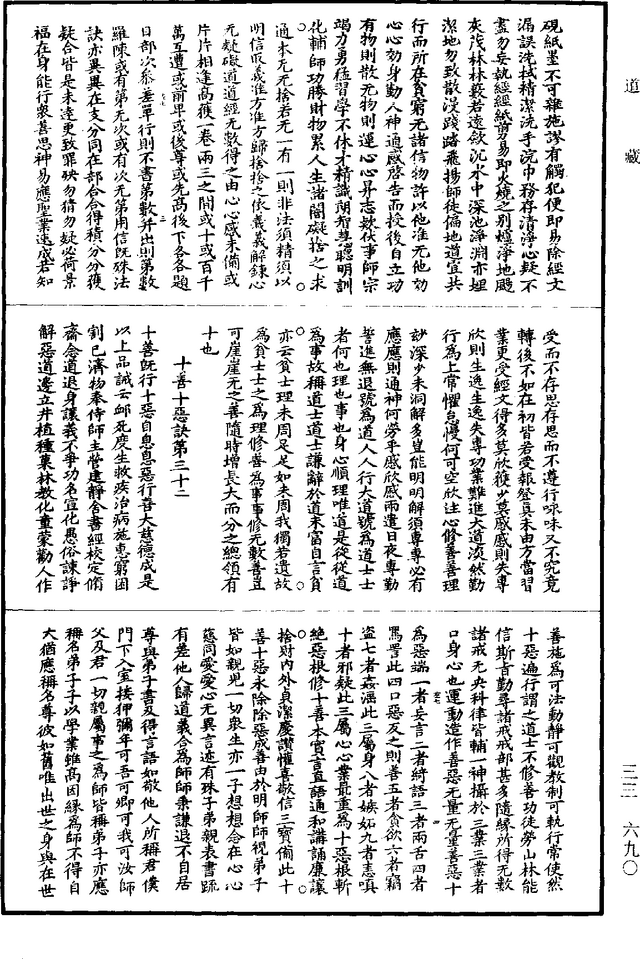 道藏
三三 六九〇
硯紙墨不可雜施謬有觸犯便即易除經文
漏誤洗拭精潔洗手浣巾務存清淨心疑不
盡勿妄執經經紙剪易即火燒之別爐淨地颺
灰茂林林藪若遠斂沉水中深池淨淵亦埋
潔地勿致散漫踐踏飛揚師徒偏地道宜共
行而所在貧窮无諸信物許以他准无他効
心心効身勤人神通感啓告而授後自立功
有物則散无物則運心心昇志歎伏事師宗
竭力勇猛習學不休才精識朗智慧聰明訓
化輔師功勝財物累人生諸闇礙捨之求
通本无无捨若无一有一則非法須精須以
明信取義准方准方歸捨捨之依義義解鍊心
无疑礙道道經无數得之由心心感未備或
片片相逢髙獲一卷兩三之間或十或百千
萬互遭或前早或後尊或先髙後下各各題
目部次叅差單行則不書第數并出則第數
羅陳或有第无次或有次无第用信旣殊法
訣亦異異在支分同在部合合得積分分獲
疑合皆是未達更致罪殃勿猜勿疑必荷景
福在身能行衆善思神易應聖業速成若知
受而不存思存思而不遵行咏味又不究竟
轉後不如在初皆若受報登真未由方當習
業更受經文得多莫欣獲少莫慼慼則失專
欣則生逸生逸失專功業難進大道淡然勤
行爲上常懼怠慢何可空欣注心修善善理
玅深少未洞解多豈能明明解須專專必有
應應則通神何勞乎慼欣慼兩遣日夜專勤
誓進無退號爲道人人行大道號爲道士士
者何也理也事也身心順理唯道是從從道
爲事故稱道士道士謙辭於道未富自言貧
亦云貧士理未周足足如未周我獨若遺故
爲貧士士之爲理修善爲事事修无數善豈
可崖崖无之善隨時增長大而分之總領有
十也
十善十惡訣第三十二
十善旣行十惡自息息惡行善大慈德成是
以上品誡云邮死度生救疾治病施惠窮困
割己濟物奉侍師主營建靜舍書經校定脩
齋念道退身讓義不爭功名宣化愚俗諫諍
解惡道邊立井植種菓林教化童蒙勸人作
善施爲可法動靜可觀教制可執行常使然
十惡遍行謂之道士不修善功徒勞山林能
信斯旨勤尋諸戒戒部甚多隨緣所得无數
諸戒无央科律皆輔一神攝於三業三業者
口身心也運動造作善惡无量无量善惡十
爲惡端一者妄言二者綺語三者兩舌四者
罵詈此四口惡反之則善五者貪欲六者竊
盜七者姦淫此三屬身八者嫉妬九者恚嗔
十者邪疑此三屬心心業最重爲十惡根斬
絶惡根修十善本實言直語通和講誦廉讓
捨財內外貞潔慶讚懽喜敬信三寶備此十
善十惡永除除惡成善由於明師師視弟子
皆如親兒一切衆生亦一子想想念在心心
慈同愛愛心无異言述有殊子弟親表書䟽
有差他人歸道義合爲師師乘謙退不自居
尊與弟子書及得言語如敬他人所稱君僕
門下入室接狎彌年可吾可卿可我可汝師
父及君一切親屬事之爲師皆稱弟子亦應
稱名弟子子以學業雖髙因緣爲師不得自
大猶應稱名尊彼如舊唯出世之身與在世